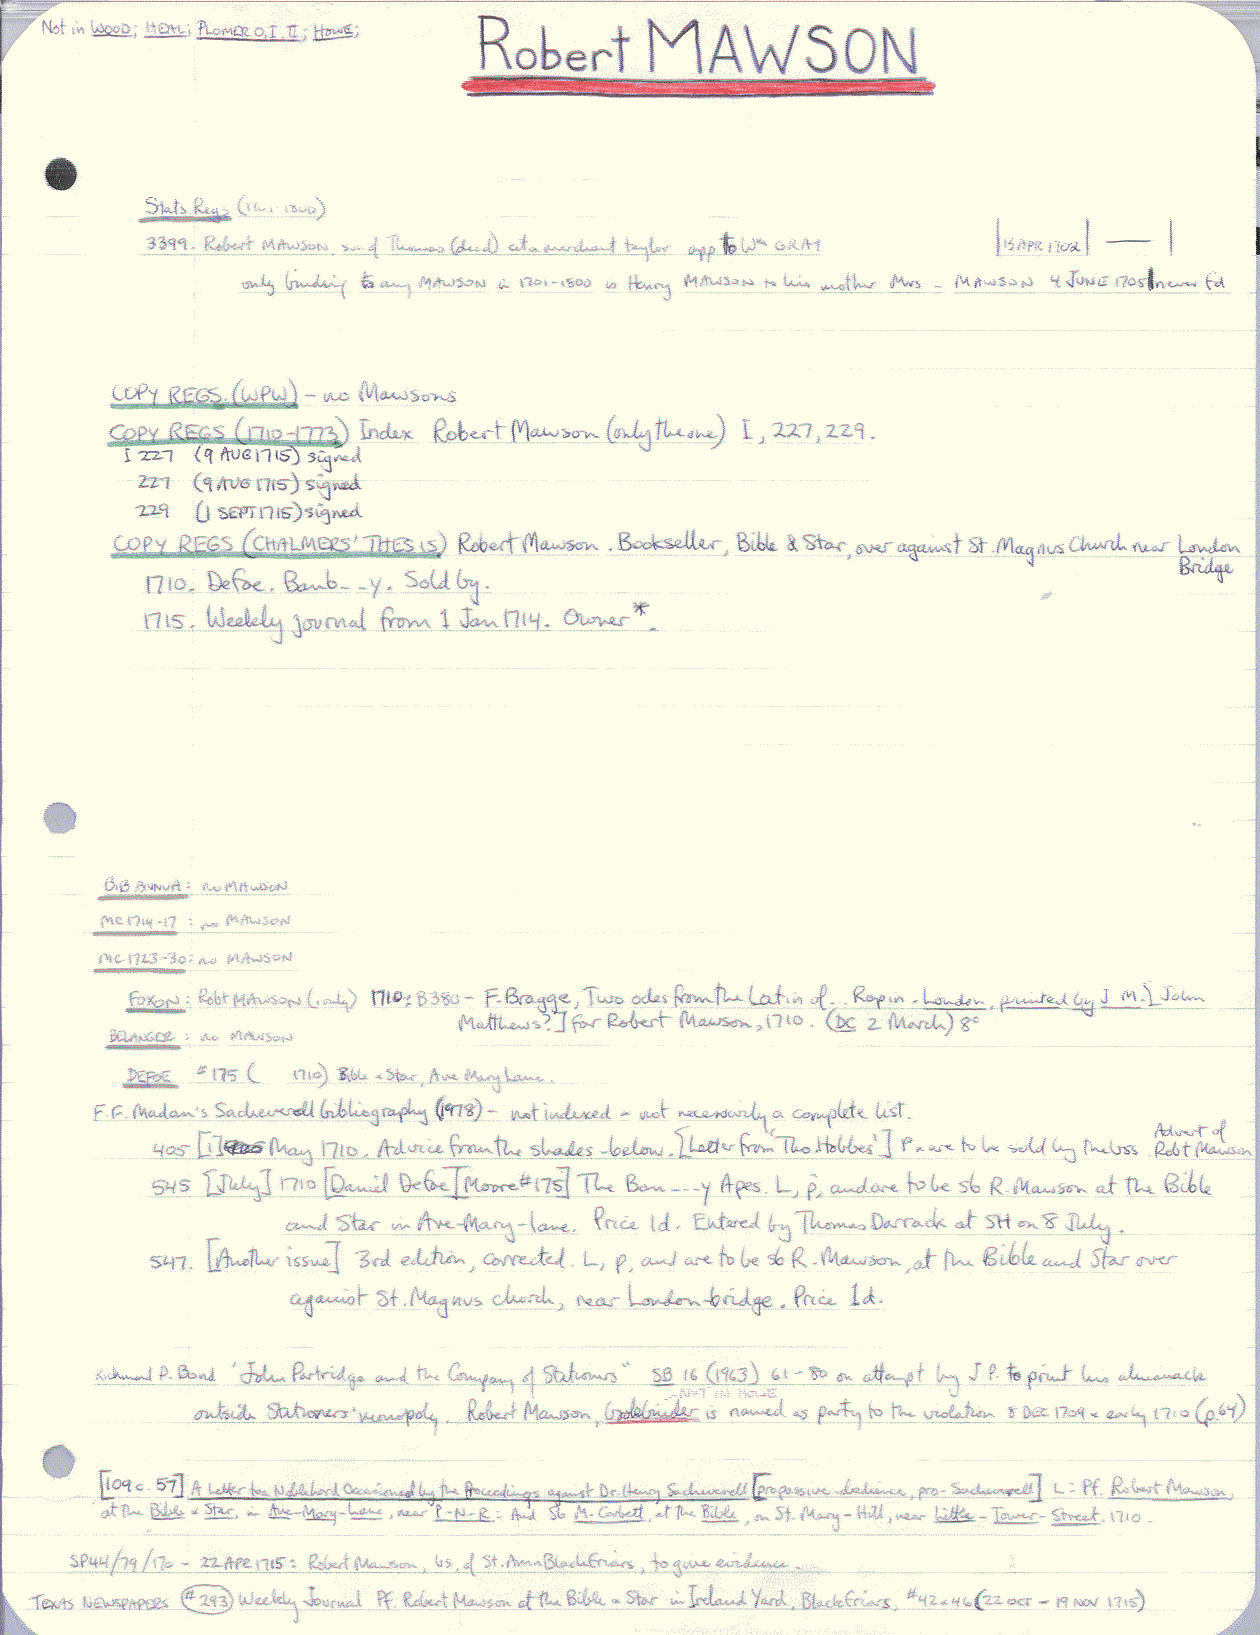 Not in WOOD; HEAL; PLOMER O, I, II; HOWE;
Robert MAWSON
Stats Regs (1701-1800)
3399. Robert MAWSON. son of Thomas (decd) cit a merchant taylor app to Wm GRAY |15 APR 1702| — |
only binding to any MAWSON in 1701-1800 is Henry MAWSON to his mother Mrs - MAWSON 4 JUNE 1705 | never fd
COPY REGS. (WPW) - no Mawsons
COPY REGS (1710-1773) Index Robert Mawson (only the one) I, 227, 229.
I 227 (9 AUG 1715) signed
227 (9 AUG 1715) signed
229 (1 SEPT 1715) signed
COPY REGS (CHALMERS' THESIS) Robert Mawson. Bookseller, Bible & Star, over against St. Magnus Church near London
Bridge
1710. Defoe. Banb---y. Sold by.
1715. Weekly journal from 1 Jan 1714. Owner*.
BIB ANNUA: no MAWSON
MC 1714-17 : no MAWSON
MC 1723-30: no MAWSON
FOXON: Robt MAWSON (only) 1710: B380 - F. Bragge, Two odes from the Latin of... Rapin. London, printed by J M.] John
Matthews?] for Robert Mawson, 1710. (DC 2 March) 8°
BELANGER : no MAWSON
DEFOE #175 ( 1710) Bible & Star, Ave Mary Lane.
F.F. Madan's Sacheverell bibliography (1978) - not indexed - not necessarily a complete list.
Advert of
405 [1] May 1710. Advice from the shades below. [Letter from 'Tho. Hobbes'] P. are to be sold by the bss Robt Mawson
545 [July] 1710 [Daniel Defoe] [Moore #175] The Ban---y Apes. L, p, and are to be sb R. Mawson at the Bible
and Star in Ave-Mary-lane. Price 1d. Entered by Thomas Darrack at SH on 8 July.
547. [Another issue] 3rd edition, corrected. L, p, and are to be sb R. Mawson, at the Bible and Star over
against St. Magnus church, near London-bridge. Price 1d.
Richmond P. Bond 'John Partridge and the Company of Stationers' SB 16 (1963) 61-80 on attempt by J P. to print his almanack
-NOT IN HOWE
outside Stationers' monopoly. Robert Mawson, bookbinder is named as party to the violation 8 DEC 1709 & early 1710 (p.64)
[109 c. 57] A Letter to a Noble Lord Occasioned by the Proceedings against Dr. Henry Sacheverell [pro passive obedience, pro-Sacheverell] L: Pf. Robert Mawson,
at the Bible & Star, in Ave-Mary-Lane, near P-N-R: And Sb M. Corbett, at the Bible, on St. Mary-Hill, near Little-Tower-Street. 1710.
SP44/79/170 - 22 APR 1715: Robert Mawson, bs, of St. Ann Blackfriars, to give evidence.
TEXAS NEWSPAPERS #293 Weekly Journal Pf. Robert Mawson at the Bible & Star in Ireland Yard, Blackfriars, #42 & 46 (22 OCT - 19 NOV 1715)